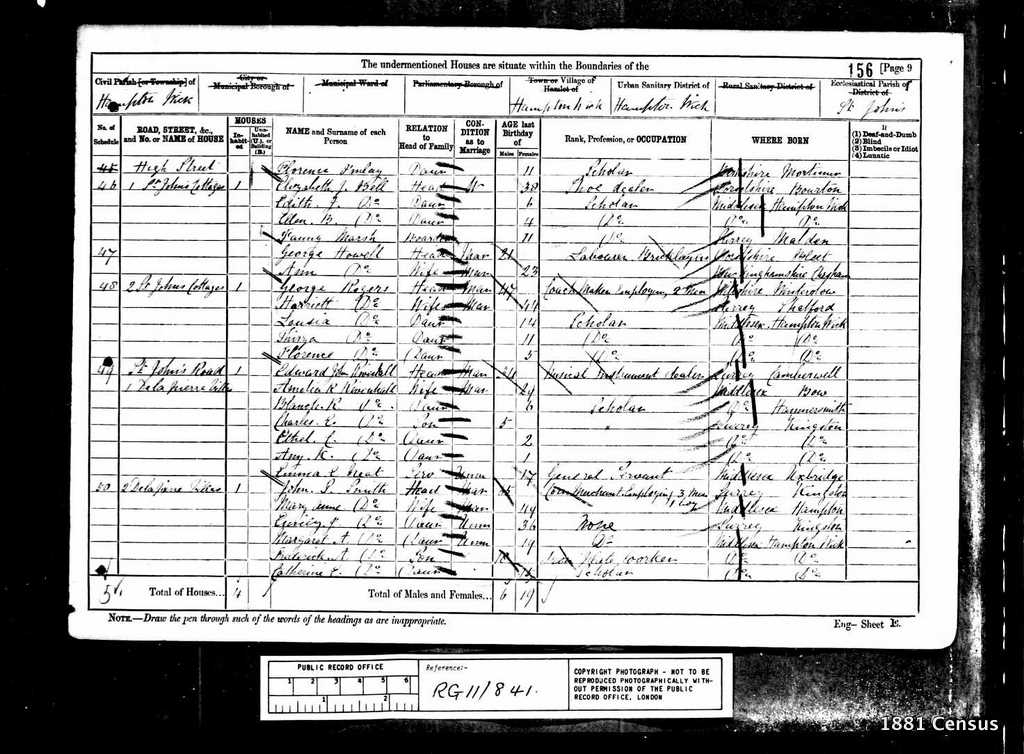 The undermentioned Houses are situate within the Boundaries of the
156 [Page 9
Civil Parish [or Township] of
City or Municipal Borough of
Municipal Ward of
Parliamentary Borough of
Town or Village of Hamlet of
Urban Sanitary District of
Rural Sanitary District of
Ecclesiastical Parish or District of
Hampton Wick
Hampton Wick
Hampton Wick
St John's
No. of Schedule
ROAD, STREET, &c., and No. or NAME of HOUSE
HOUSES
Inhabited
Uninhabited (U.) or Building (B.)
NAME and Surname of each Person
RELATION to Head of Family
CONDITION as to Marriage
AGE last Birthday of
Males
Females
Rank, Profession, or OCCUPATION
WHERE BORN
If
(1) Deaf-and-Dumb
(2) Blind
(3) Imbecile or Idiot
(4) Lunatic
45 High Street Florence Daur 11 Scholar Mortimer
46 1 St Johns Cottages 1 Elizabeth J. Bell Head W 38 Shoe dealer Bourton
Edith J. Do Daur 6 Scholar Middlesex Hampton Wick
B. Do Daur 4 Do Do Do
Fanny Marsh Boarder 11 Do Surrey Malden
47 George Howell Head Mar 21 Labourer Bricklayers
Ann Do Wife Mar 23 Buckinghamshire Chesham
48 2 St Johns Cottages 1 George Rogers Head Mar 47 Coach Maker Employing 2 Men Wiltshire
Harriett Do Wife Mar 44 Surrey
Louisa Do Daur 14 Scholar Middlesex Hampton Wick
Do Daur 11 Do Do Do
Florence Do Daur 5 Do Do Do
49 St John's Road 1 Edward John Head Mar Musical Instrument dealer Surrey Camberwell
1 Wife Mar 29 Middlesex Bow
Blanche R. Do Daur 6 Scholar Do Hammersmith
Charles E. Do Son 5 " Surrey Kingston
Ethel C. Do Daur 2 Do Do
Amy K. Do Daur 1 Do Do
Emma L. Serv Unm 17 General Servant Middlesex Uxbridge
50 2 1 John S. Smith Head Mar Corn Merchant Employing 3 Men Surrey Kingston
Mary Anne Do Wife Mar Middlesex Hampton
Do Daur Unm 36 None Surrey Kingston
Margaret A Do Daur Unm 19 Do Middlesex Hampton Wick
Frederick Do Son worker Do Do
Catherine E. Do Daur Scholar Do Do
Total of Houses... 4
Total of Males and Females... 6 19
NOTE.—Draw the pen through such of the words of the headings as are inappropriate.
Eng— Sheet E.
PUBLIC RECORD OFFICE
1 2 3 4 5 6
1 2
Reference:-
RG 11/841.
COPYRIGHT PHOTOGRAPH - NOT TO BE
REPRODUCED PHOTOGRAPHICALLY WITH-
OUT PERMISSION OF THE PUBLIC
RECORD OFFICE, LONDON
1881 Census